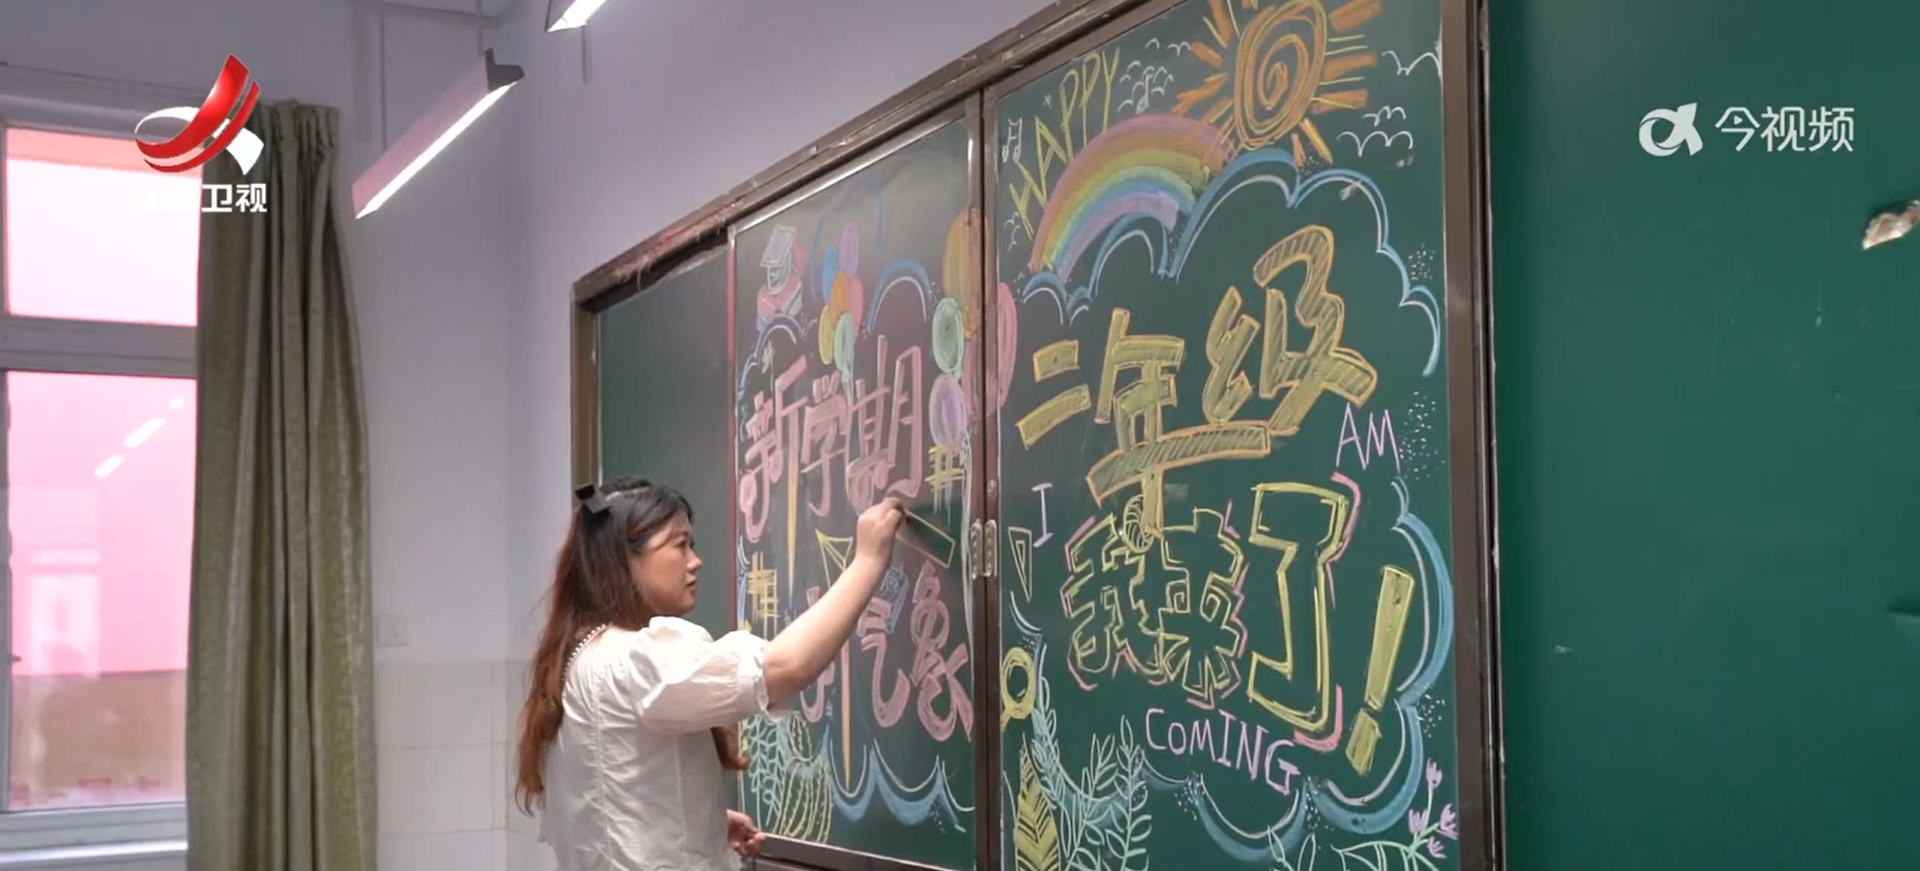 卫视
今视频
HAPPY
新学期
新气象
二年级
I AM
我来了!
COMING